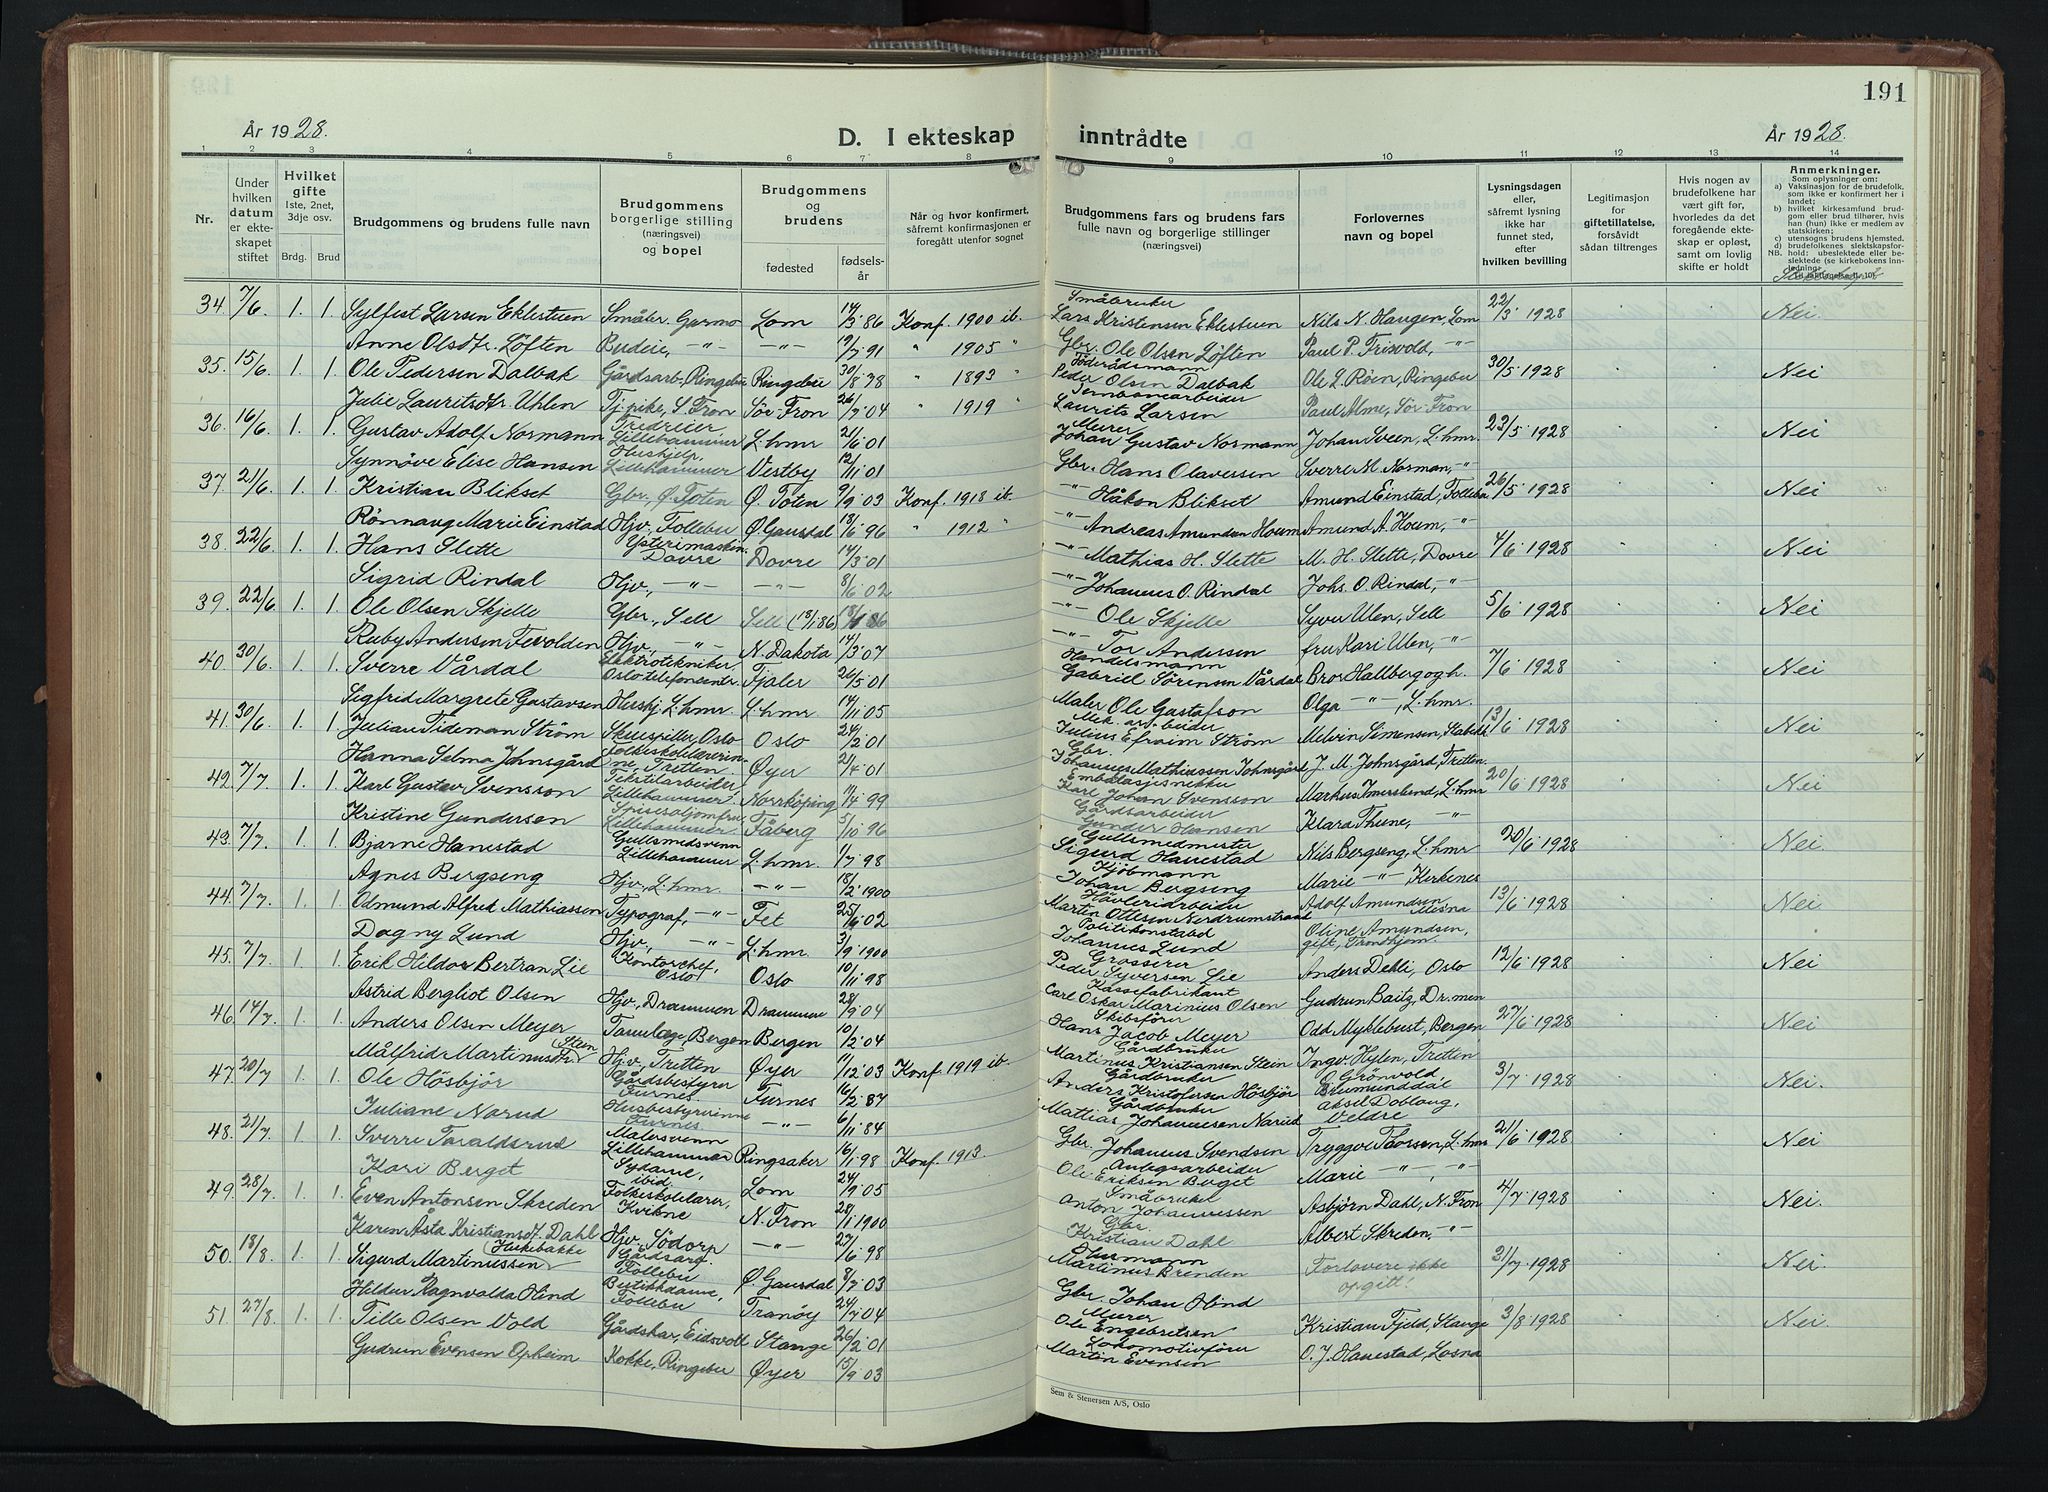 191
År 1928.
D. I ekteskap inntrådte
År 1928.
1 2 3 4 5 6 7 8 9 10 11 12 13 14
Nr.
Under hvilken datum er ekteskapet stiftet
Hvilket gifte 1ste, 2net, 3dje osv.
Brdg. Brud
Brudgommens og brudens fulle navn
Brudgommens borgerlige stilling (næringsvei) og bopel
Brudgommens og brudens
fødested
fødselsår
Når og hvor konfirmert, såfremt konfirmasjonen er foregått utenfor sognet
Brudgommens fars og brudens fars fulle navn og borgerlige stillinger (næringsvei)
Forlovernes navn og bopel
Lysningsdagen eller, såfremt lysning ikke har funnet sted, efter hvilken bevilling
Legitimasjon for giftetillatelse, forsåvidt sådan tiltrenges
Hvis nogen av brudefolkene har vært gift før, hvorledes da det foregående ekteskap er opløst, samt om lovlig skifte er holdt
Anmerkninger.
Som oplysninger om:
a) Vaksinasjon for de brudefolk, som ikke er konfirmert her i landet;
b) hvilket kirkesamfund brudgom eller brud tilhører, hvis han (hun) ikke er medlem av statskirken;
c) utensogns brudens hjemsted.
d) brudefolkenes slektskapsforhold: ubeslektede eller beslektede (se kirkebokens innledning
NB.
34. 7/6 1. 1. Sylfest Larsen Eklestuen Småbr. Garmo Lom 14/3 86 Konf. 1900 ib. Småbruker Lars Kristensen Eklestuen Nils N. Haugen, Lom 22/5 1928 Nei
Anne Olsdtr. Løften Budeie, -"- -"- 19/7 91 " 1905 " Gbr. Ole Olsen Løften Paul P. Frisvold, -"-
35. 15/6 1. 1. Ole Pedersen Dalbak Gårdsarb., Ringebu Ringebu 30/8 78 " 1893 " Föderådsmann Peder Olsen Dalbak Ole L. Røen, Ringebu 30/5 1928 Nei
Julie Lauritsdtr. Uhlen Tj.pike, S. Fron Sör Fron 26/7 04 " 1919 " Jernbanearbeider Laurits Larsen Paul Alme, Sör Fron
36. 16/6 1. 1. Gustav Adolf Normann Tredreier Lillehammer L.hmr 21/6 01 Meier Johan Gustav Normann Johan Sveen, L.hmr. 22/5 1928 Nei
Synnöve Elise Hansen Hushjelp, Lillehammer Vestby 12/11 01 Gbr. Hans Olavessen Sverre M. Norman, -"-
37. 21/6 1. 1. Kristian Blikset Gbr. Ø. Toten Ø. Toten 9/9 03 Konf. 1918 ib. -"- Håkon Blikset Amund Einstad, Follebu 26/5 1928 Nei
Rönnaug Marie Einstad Hjv. Follebu Ø. Gausdal 18/6 96 " 1912 " -"- Andreas Amundsen Houm Amund A. Houm, -"-
38. 22/6 1. 1. Hans Slette Ysterimaskin. Dovre Dovre 14/3 01 -"- Mathias H. Slette M. H. Slette, Dovre 4/6 1928 Nei
Sigrid Rindal Hjv., -"- -"- 8/6 02 -"- Johannes O. Rindal Johs. O. Rindal, -"-
39. 22/6 1. 1. Ole Olsen Skjelle Gbr., Sell Sell (13/1 86) -"- Ole Skjelle Syver Ulen, Sell 5/6 1928 Nei
Ruby Andersen Fevolden Hjv., -"- N. Dakota 14/3 07 -"- Tor Andersen fru Kari Ulen, -"-
40. 30/6 1. 1. Sverre Vårdal Elektrotekniker, Oslo telefoncentr. Fjaler 20/5 01 Handelsmann Gabriel Sörensen Vårdal Bror Hallberg og h. 7/6 1928 Nei
Sigfrid Margrete Gustavsen Hushj. L.hmr. L.hmr. 14/11 05 Maler Ole Gustafson Olga -"-, L.hmr.
41. 30/6 1. 1. Julian Tideman Ström Skuespiller, Oslo Oslo 24/2 01 Mek. arbeider Julius Efraim Ström Melvin Simensen, Stabekk 13/6 1928 Nei
Hanna Selma Johnsgård Folkeskolelærerinne, Tretten Øyer 21/4 01 Gbr. Johannes Mathiassen Johnsgård J. M. Johnsgård, Tretten
42. 7/7 1. 1. Karl Gustav Svensson Tekstilarbeider, Lillehammer Norrköping 11/4 99 Embalasjesnekker Karl Johan Svensson Markus Imerslund, L.hmr 20/6 1928 Nei
Kristine Gundersen Spisevognjomfru, Lillehammer Fåberg 5/10 96 Gårdsarbeider Gunder Hansen Klara Thune, -"-
43. 7/7 1. 1. Bjarne Hanestad Gullsmedsvenn Lillehammer L.hmr. 1/7 98 Gullsmedmester Sigurd Hanestad Nils Bergseng, L.hmr 20/6 1928 Nei
Agnes Bergseng Hjv., L.hmr. -"- 18/2 1900 Kjöbmann Johan Bergseng Marie -"- Kirkenes
44. 7/7 1. 1. Odmund Alfred Mathiassen Typograf, -"- Fet 25/6 02 Høvleriarbeider Martin Ottesen Nerdrumstrand Adolf Amundsen Mesna 13/6 1928 Nei
Dagny Lund Hjv., -"- L.hmr. 3/9 1900 Politikonstabel Johannes Lund Oline Amundsen, gift, Trondhjem.
45. 7/7 1. 1. Erik Hildor Bertran Lie Kontorchef, Oslo Oslo 10/11 98 Grosserer Peder Syversen Lie Anders Dehli, Oslo 12/6 1928 Nei
Astrid Bergliot Olsen Hjv., Drammen Drammen 28/9 04 Kassefabrikant Carl Oskar Marinius Olsen Gudrun Baitz, Dr.men
46. 14/7 1. 1. Anders Olsen Meyer Tannlæge, Bergen Bergen 10/2 04 Skibsförer Hans Jacob Meyer Odd Myklebust, Bergen 27/6 1928 Nei
Målfrid Martinusdtr. (Steen) Hjv., Tretten Øyer 11/12 03 Konf. 1919 ib. Gårdbruker Martinus Kristiansen Stein Ingv. Hylen, Tretten
47. 20/7 1. 1. Ole Hösbjör Gårdsbestyrer Furnes. Furnes 16/2 87 Gårdbruker Anders Kristofersen Hösbjör O. Grönvold, Brumunddal 3/7 1928 Nei.
Juliane Narud Husbestyrinne Furnes -"- 6/11 84 Gårdbruker Mattias Johannesen Narud Aksel Doblaug, Veldre
48. 21/7 1. 1. Sverre Tavaldsrud Malersvenn Lillehammer Ringsaker 16/1 98 Konf. 1913. Gbr. Johannes Svendsen Tryggve Thorsen, L.hmr 21/6 1928 Nei
Kari Berget Sydame, ibid. Lom 24/9 05 Anlegsarbeider Ole Eriksen Berget Marie -"-, -"-
49. 28/7 1. 1. Even Antonsen Skreden Folkeskolelærer, Kvikne N. Fron 28/1 1900 Småbruker Anton Johannessen Asbjörn Dahl, N. Fron 4/7 1928 Nei
Karen Åsta Kristiansdt. Dahl Hjv. Södorp -"- 27/6 98 Gbr. Kristian Dahl Albert Skreden, -"-
50. 18/8 1. 1. Sigurd Martinussen (Huskebakke) Gårdsarb. Follebu Ø. Gausdal 8/7 03 Martinus Brenden Forlovere ikke opgitt! 31/7 1928 Nei
Hildur Ragnvalda Hind Butikkdame, Follebu Tranöy 24/7 04 Gbr. Johan Hind
51. 27/8 1. 1. Tille Olsen Vold Gårdskar, Eidsvoll Stange 26/2 01 Meier Ole Engebretsen Kristian Fjeld, Stange 3/8 1928 Nei
Gudrun Evensen Opheim Kokke, Ringebu Øyer 15/9 03 Lokomotivförer Martin Evensen O. J. Hanestad, Losna
Sem & Stenersen A/S, Oslo